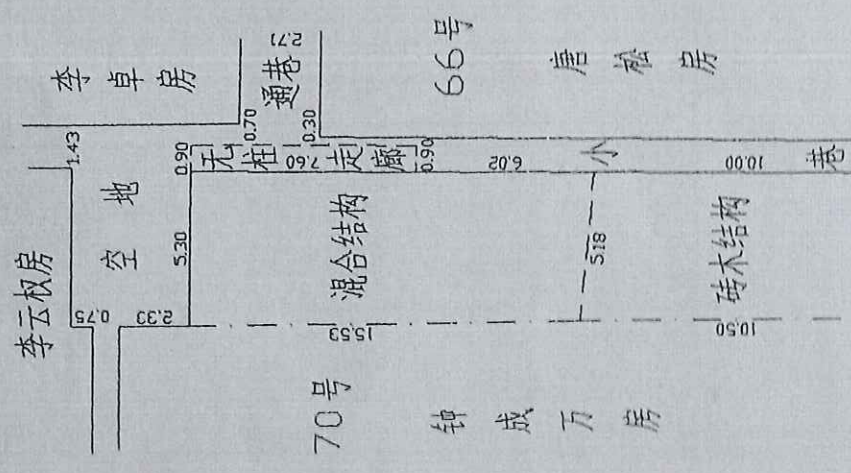 李卓房
通巷
2.71
66号
唐松房
1.43
0.70
0.30
李云权房
空地
0.90
无柱走廊
7.60
0.90
6.02
小巷
10.00
5.30
混合结构
5.18
砖木结构
0.75
2.33
15.53
10.50
70号
钟成万房